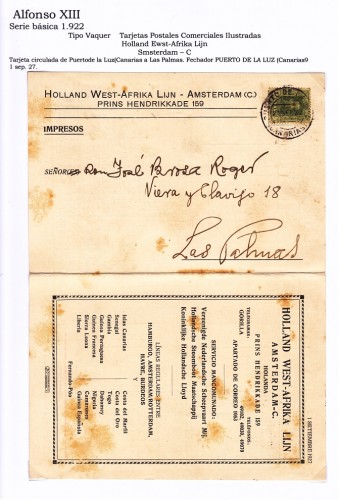 Alfonso XIII
Serie básica 1.922
Tipo Vaquer Tarjetas Postales Comerciales Ilustradas
Holland Ewst-Afrika Lijn
Smsterdam – C
Tarjeta circulada de Puertode la Luz(Canarias a Las Palmas. Fechador PUERTO DE LA LUZ (Canarias9
1 sep. 27.
HOLLAND WEST-AFRIKA LIJN - AMSTERDAM (C.)
PRINS HENDRIKKADE 159
IMPRESOS
SEÑORES Don José Brosa Roger
Viera y Clavijo 18
Las Palmas
1 SETIEMBRE 1927
HOLLAND WEST-AFRIKA LIJN
AMSTERDAM-C.
HOLANDA
PRINS HENDRIKKADE 159
TELEGRAMAS:
GORILLA
TELÉFONOS:
APARTADO DE CORREO
SERVICIO MANCOMUNADO:
Vereenigde Nederlandsche Scheepvaart Mij.
Hollandsche Stoomboot Maatschappij
Koninklijke Hollandsche Lloyd
LÍNEAS REGULARES ENTRE
HAMBURGO, AMSTERDAM/ROTTERDAM,
HAVRE, BURDEOS
Y
Islas Canarias
Senegal
Gambia
Guinea Portuguesa
Guinea Francesa
Sierra Leona
Liberia
Costa del Marfil
Costa del Oro
Togo
Dahomey
Nigeria
Camarones
Guinea Española
Fernando Póo